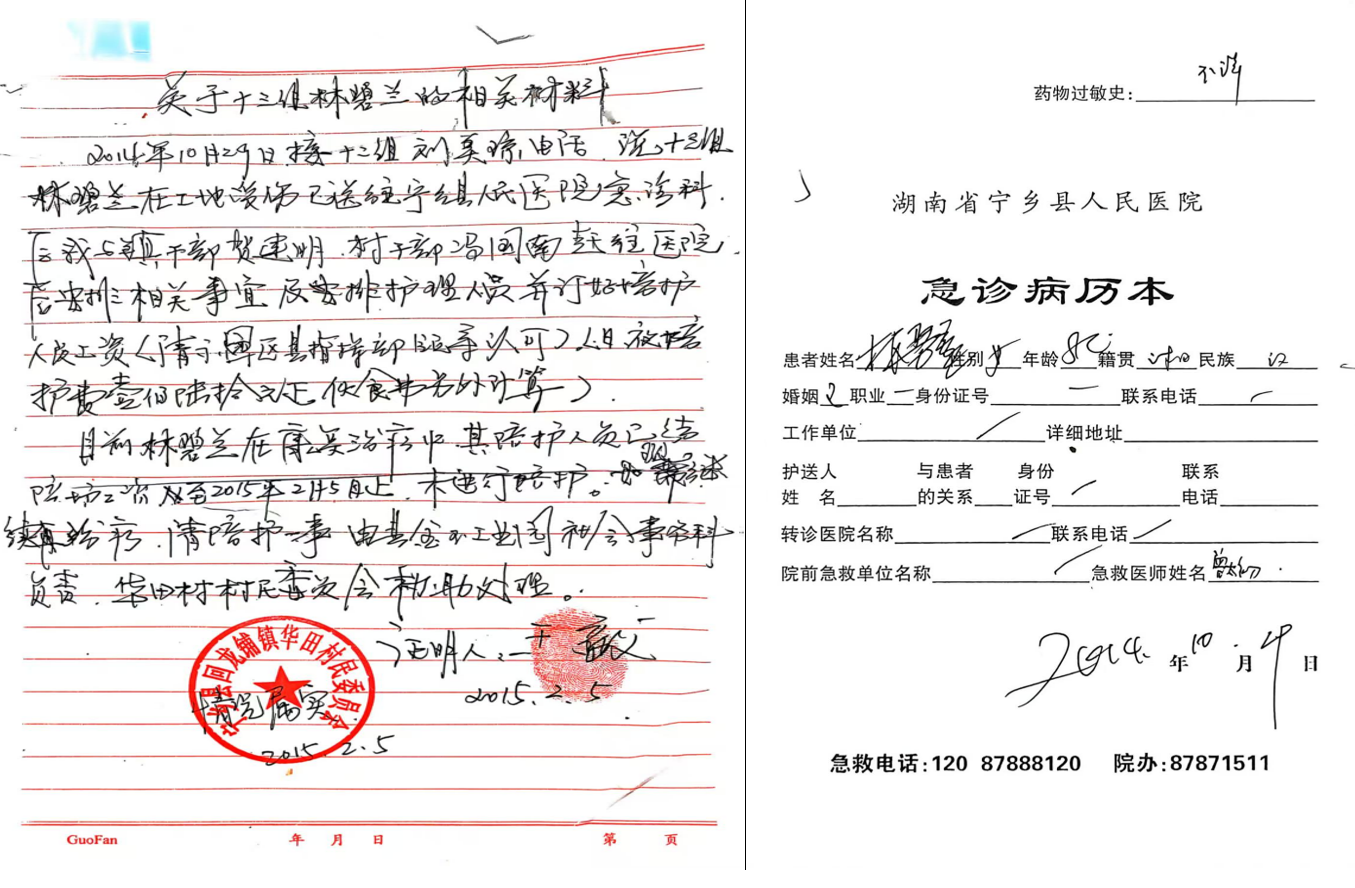 关于十三组林碧兰的相关材料
2014年10月29日接十三组刘 电话 说十三组
林碧兰在工地受伤已送往宁乡县人民医院急诊科.
后我与镇干部贺建明.村干部冯国南赶往医院.
后安排相关事宜及安排护理人员并订好陪护
人员工资(请示 区县指挥部 认可)
护费壹佰陆拾元正 伙食费另外计算).
目前林碧兰在康复治疗中.其陪护人员已结
陪护工资 至2015年2月5日止.未进行陪护。如
续 治疗.请陪护一事由县金玉工业园社会事务科
负责.华田村村民委员会协助处理。
证明人:王
2015.2.5
宁乡县回龙铺镇华田村民委员会
情况属实
2015.2.5
GuoFan 年 月 日 第 页
药物过敏史:不详
湖南省宁乡县人民医院
急诊病历本
患者姓名 林碧兰 性别 女 年龄 籍贯 湖南 民族 汉
婚姻 职业 一 身份证号 一 联系电话
工作单位 详细地址
护送人 与患者 身份 联系
姓 名 的关系 证号 电话
转诊医院名称 联系电话
院前急救单位名称 急救医师姓名
2014. 年 10 月 日
急救电话:120 87888120 院办:87871511